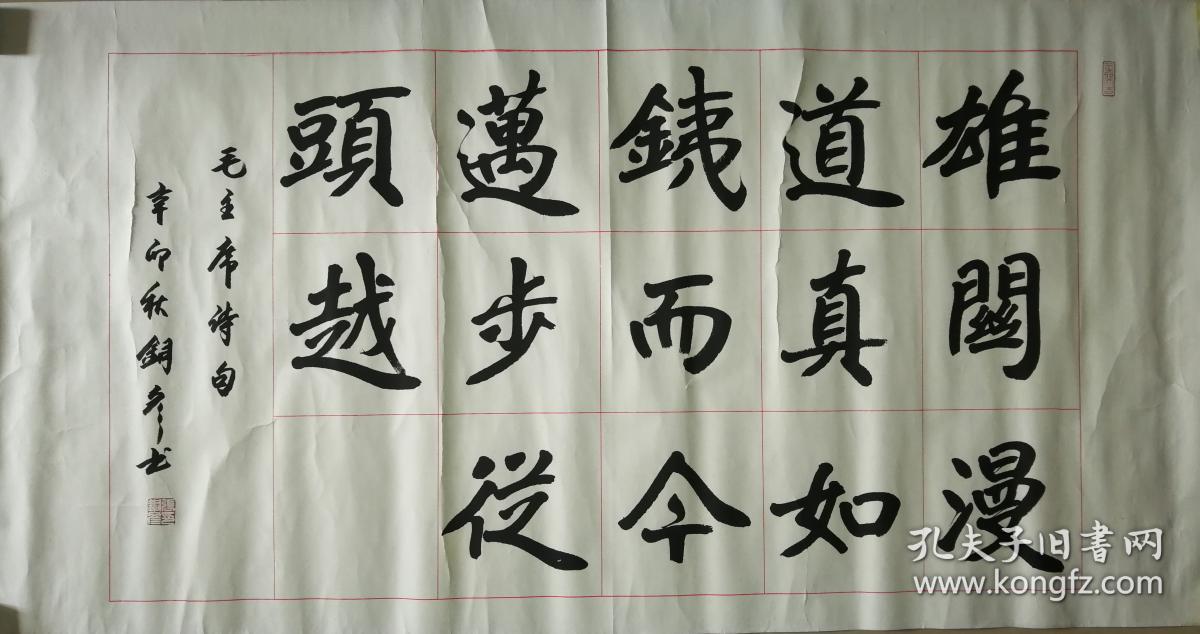 雄關漫
道真如
銕而今
邁步從
頭越
毛主席詩句
辛卯秋銅书
孔夫子旧書网
www.kongfz.com